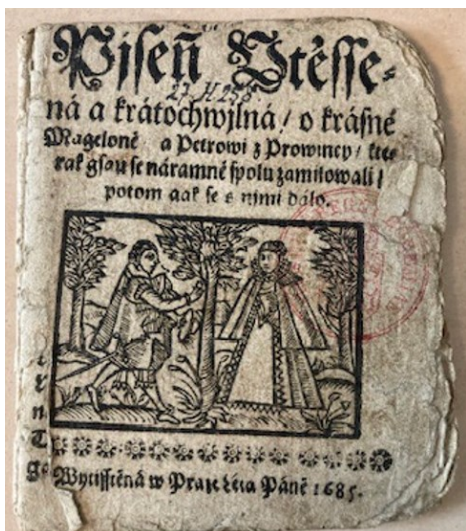 Pjseň Vtěsse-
27 H 258.
ná a krátochwjlná / o krásné
Mageloně a Petrowi z Prowincy / kte
rak gsau se náramně spolu zamilowali /
potom gak se s nimi dálo.
Wytisstěná w Praze Léta Páně 1685.